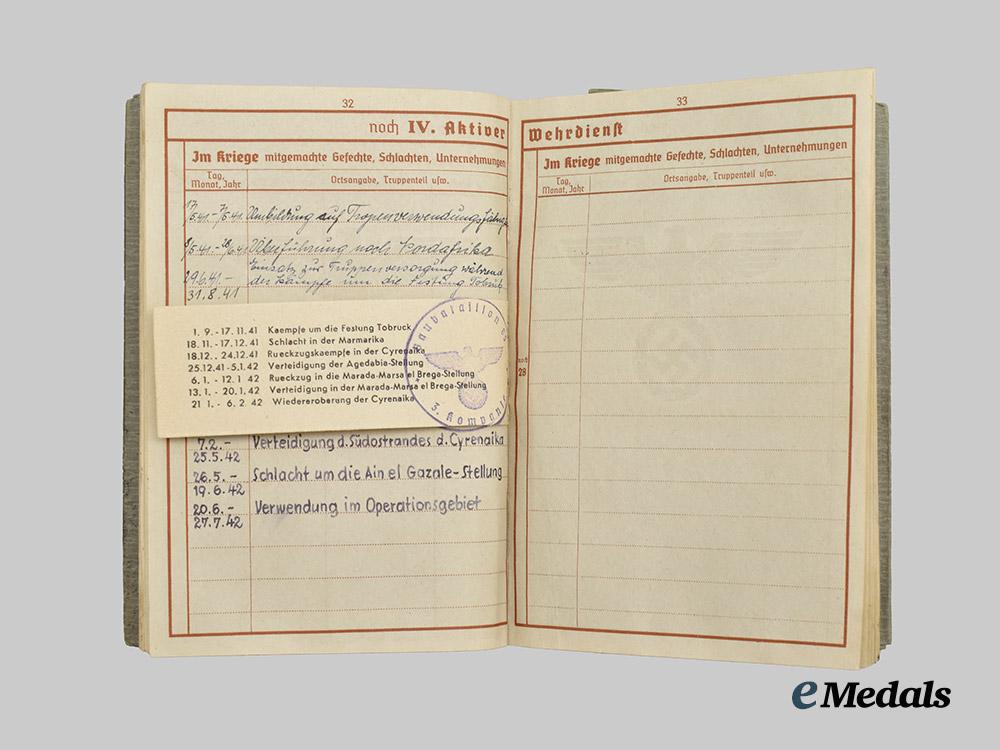 32
noch IV. Aktiver
Im Kriege mitgemachte Gefechte, Schlachten, Unternehmungen
Tag, Monat, Jahr
Ortsangabe, Truppenteil usw.
17/5.41.- 7/6.41. Umbildung auf Tropenverwendungsfähig
8/6.41.- 28/6.41 Überführung nach Nordafrika
29.6.41.- Einsatz zur Truppenversorgung während
31.8.41 der Kämpfe um die Festung Tobruk
1. 9. - 17. 11. 41 Kaempfe um die Festung Tobruck
18. 11. - 17. 12. 41 Schlacht in der Marmarika
18.12. . 24.12. 41 Rueckzugskaempfe in der Cyrenaika
25.12.41 - 5.1. 42 Verteidigung der Agedabia-Stellung
6. 1. - 12. 1 42 Rueckzug in die Marada-Marsa el Brega-Stellung
13. 1. - 20. 1. 42 Verteidigung in der Marada-Marsa el Brega-Stellung
21 1. - 6. 2. 42 Wiedereroberung der Cyrenaika
Baubataillon
3. Kompanie
7.2.- Verteidigung d. Südostrandes d. Cyrenaika
25.5.42
26.5.- Schlacht um die Ain el Gazale-Stellung
19.6.42
20.6.- Verwendung im Operationsgebiet
27.7.42
33
Wehrdienst
Im Kriege mitgemachte Gefechte, Schlachten, Unternehmungen
Tag, Monat, Jahr
Ortsangabe, Truppenteil usw.
noch
28
eMedals